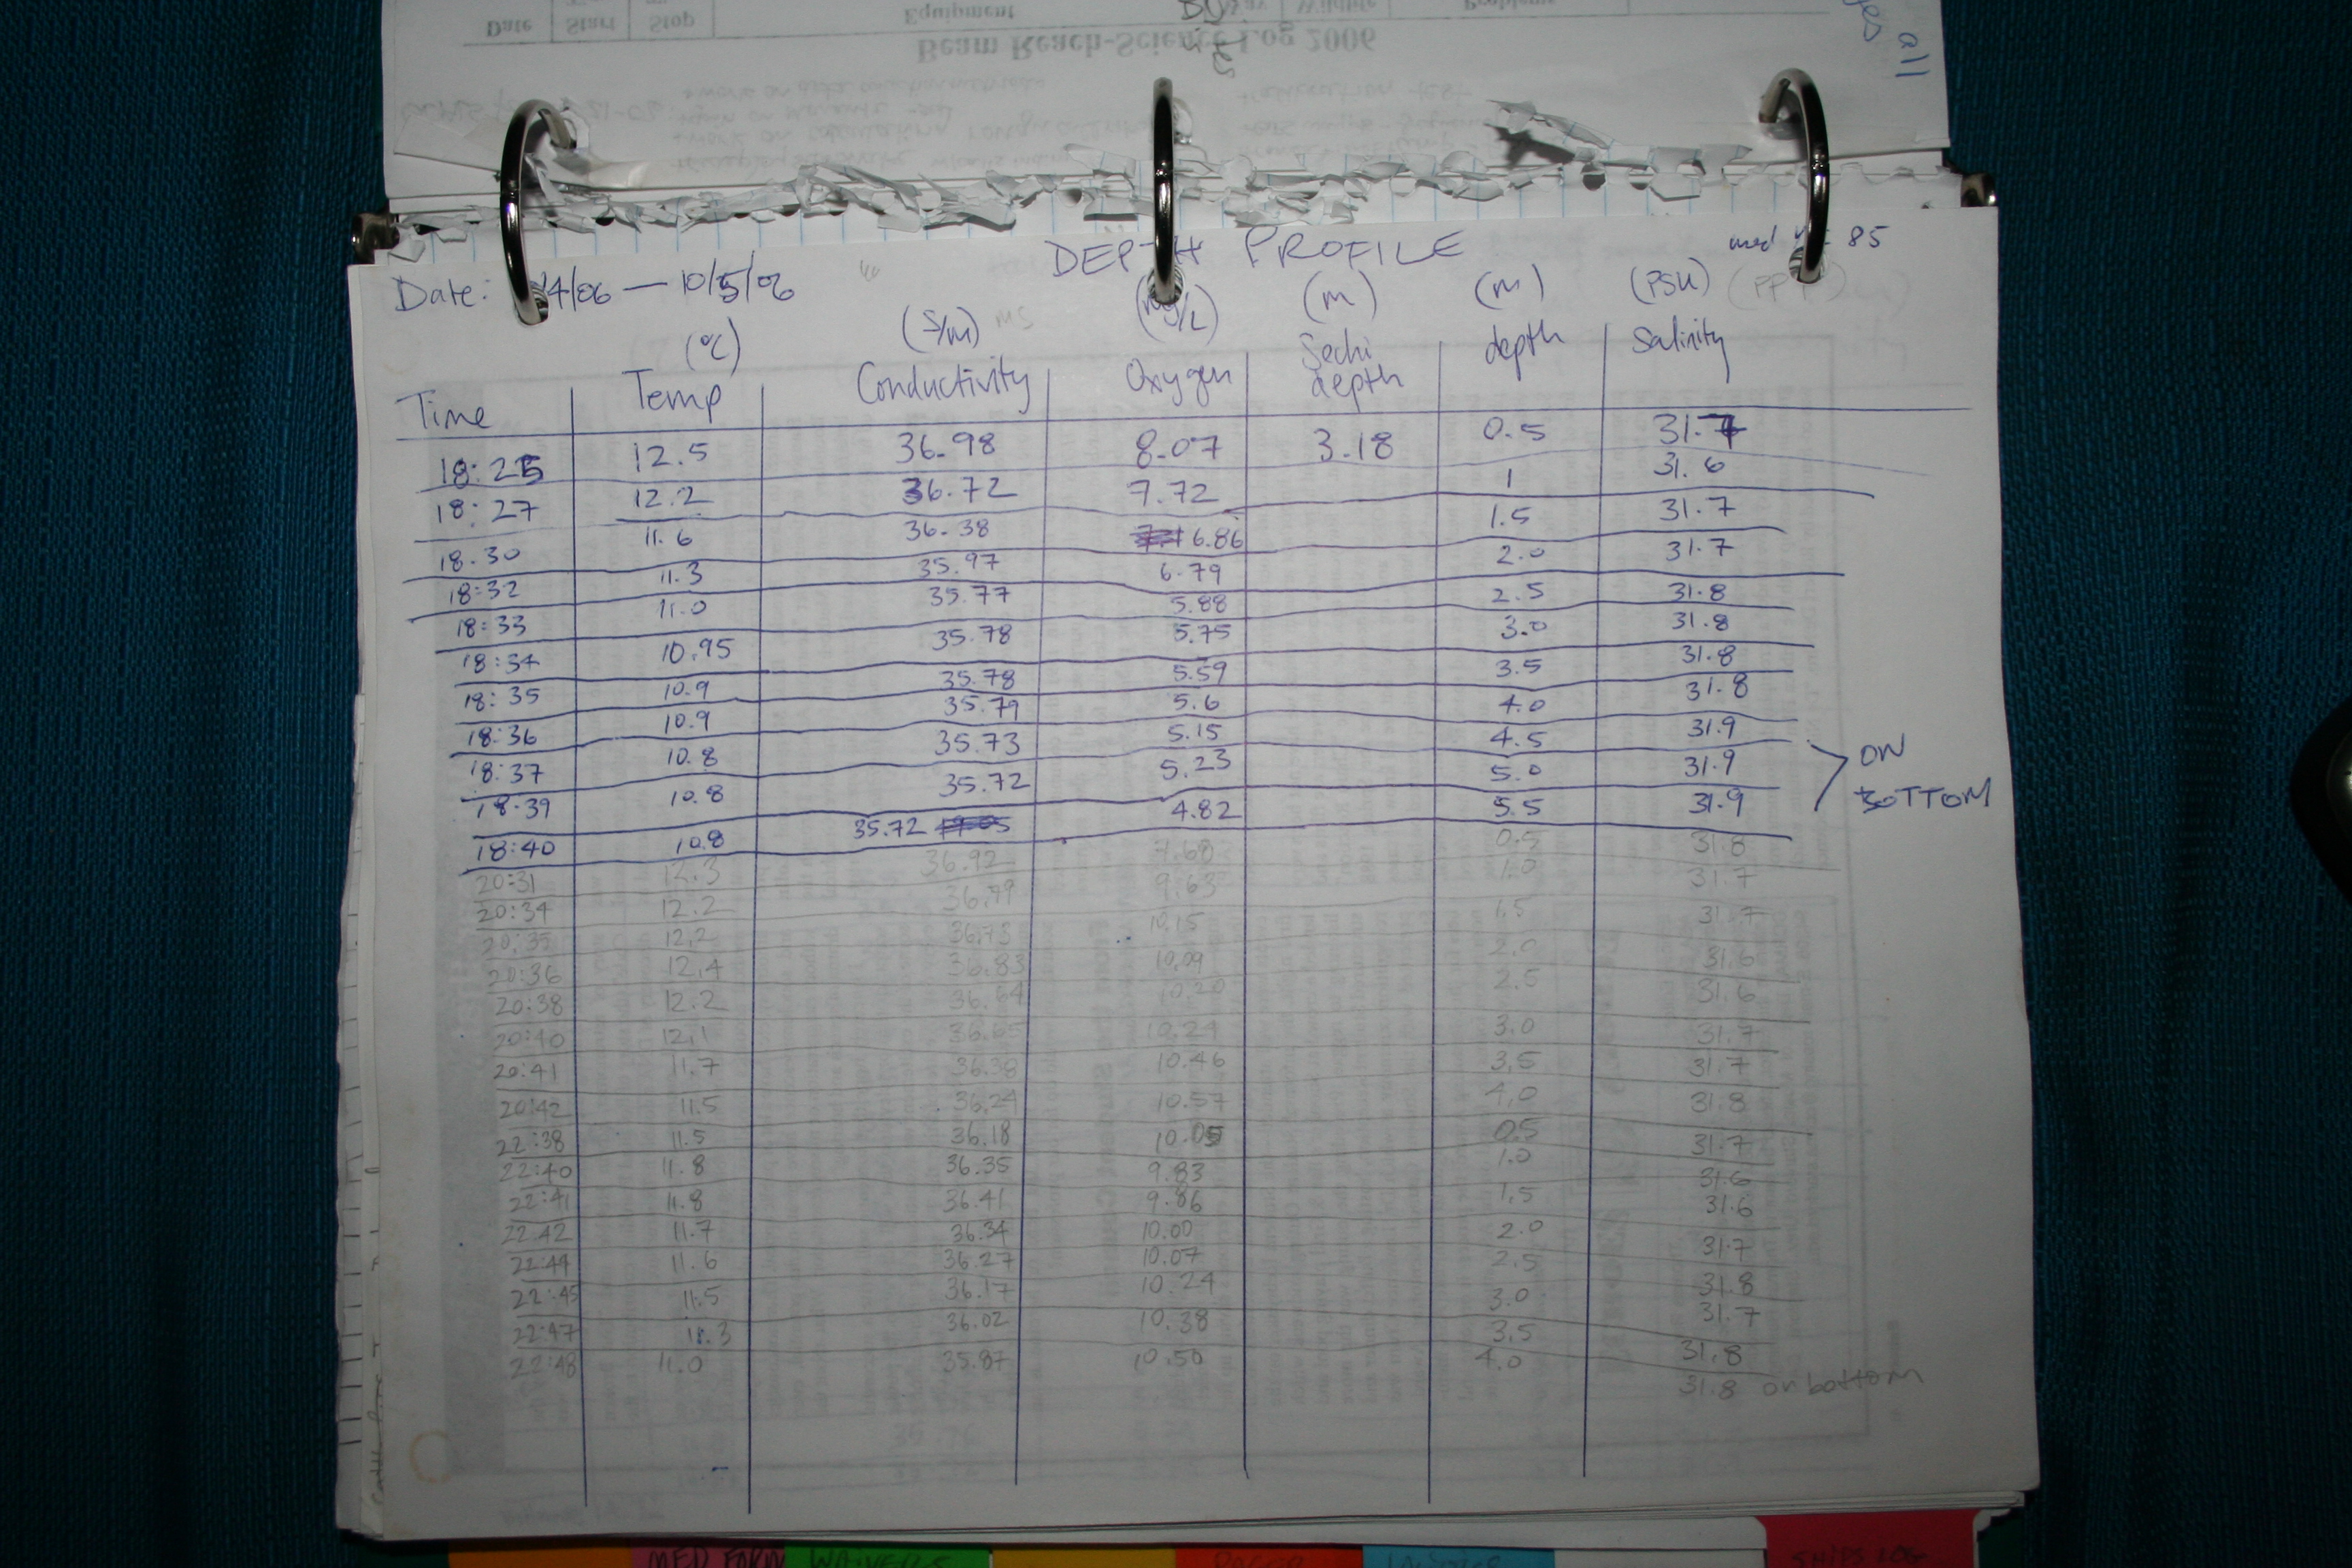 Date Start Stop Equipment
Beam Reach-Science Log 2006
all
DEPTH PROFILE
med 85
Date: 4/06 — 10/5/06
(°C) (S/m) (mg/L) (m) (m) (PSU)
Time Temp Conductivity Oxygen Sechi depth depth Salinity
18:25 12.5 36.98 8.07 3.18 0.5 31.7
18:27 12.2 36.72 7.72 1 31.6
18:30 11.6 36.38 6.86 1.5 31.7
18:32 11.3 35.97 6.79 2.0 31.7
18:33 11.0 35.77 5.88 2.5 31.8
18:34 10.95 35.78 5.75 3.0 31.8
18:35 10.9 35.78 5.59 3.5 31.8
18:36 10.9 35.79 5.6 4.0 31.8
18:37 10.8 35.73 5.15 4.5 31.9
18:39 10.8 35.72 5.23 5.0 31.9
18:40 10.8 35.72 4.82 5.5 31.9
ON BOTTOM
20:31 12.3 36.92 7.68 0.5 31.8
20:34 12.2 36.79 9.63 1.0 31.7
20:35 12.2 36.73 10.15 1.5 31.7
20:36 12.4 36.83 10.09 2.0 31.6
20:38 12.2 36.64 10.20 2.5 31.6
20:40 12.1 10.24 3.0 31.7
20:41 11.7 36.38 10.46 3.5 31.7
20:42 11.5 36.24 10.57 4.0 31.8
22:38 11.5 36.18 10.05 0.5 31.7
22:40 11.8 36.35 9.83 1.0 31.6
22:41 11.8 36.41 9.86 1.5 31.6
22:42 11.7 36.34 10.00 2.0 31.7
22:44 11.6 36.27 10.07 2.5 31.8
22:45 11.5 36.17 10.24 3.0 31.7
22:47 11.3 36.02 10.38 3.5 31.8
22:48 11.0 35.87 10.50 4.0 31.8 on bottom
MED FORM WAIVERS
SHIPS LOG